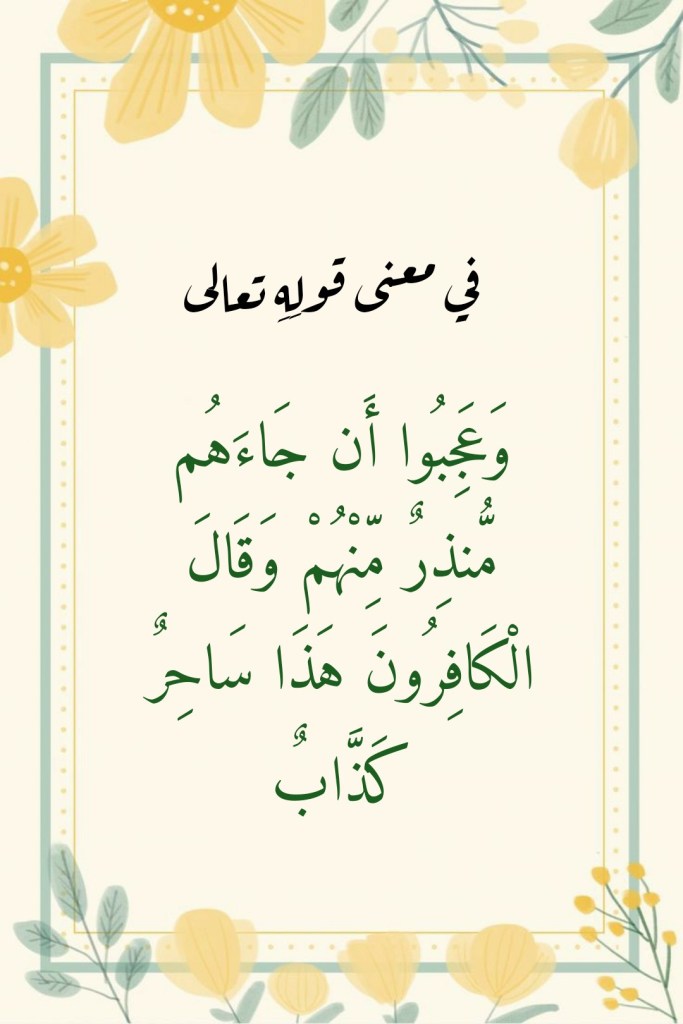 في معنى قولِهِ تعالى
وَعَجِبُوا أَن جَاءَهُم
مُّنذِرٌ مِّنْهُمْ وَقَالَ
الْكَافِرُونَ هَذَا سَاحِرٌ
كَذَّابٌ